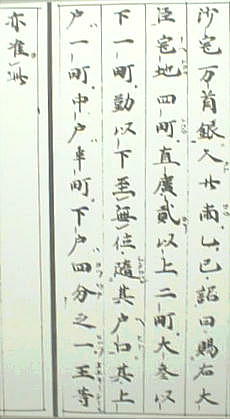 沙宅万首銀人廿兩乙巳詔曰賜右大
臣宅地四町直廣貳以上二町大參以
下一町勤以下至無位隨其戸口其上
戸一町中戸半町下戸四分之一王等
亦准此